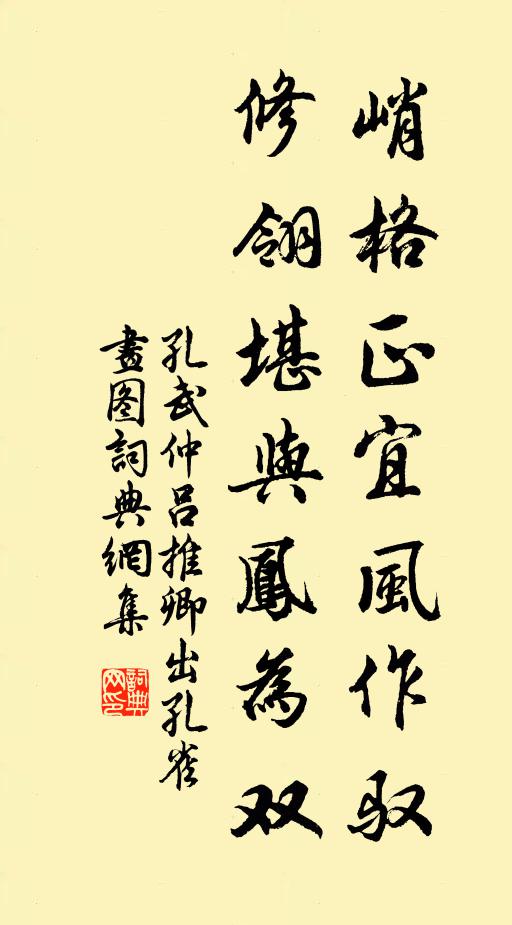 峭格正宜風作驭
修翎堪與鳳為双
孔武仲吕推卿出孔雀
畫图詞典網集
詞典网印